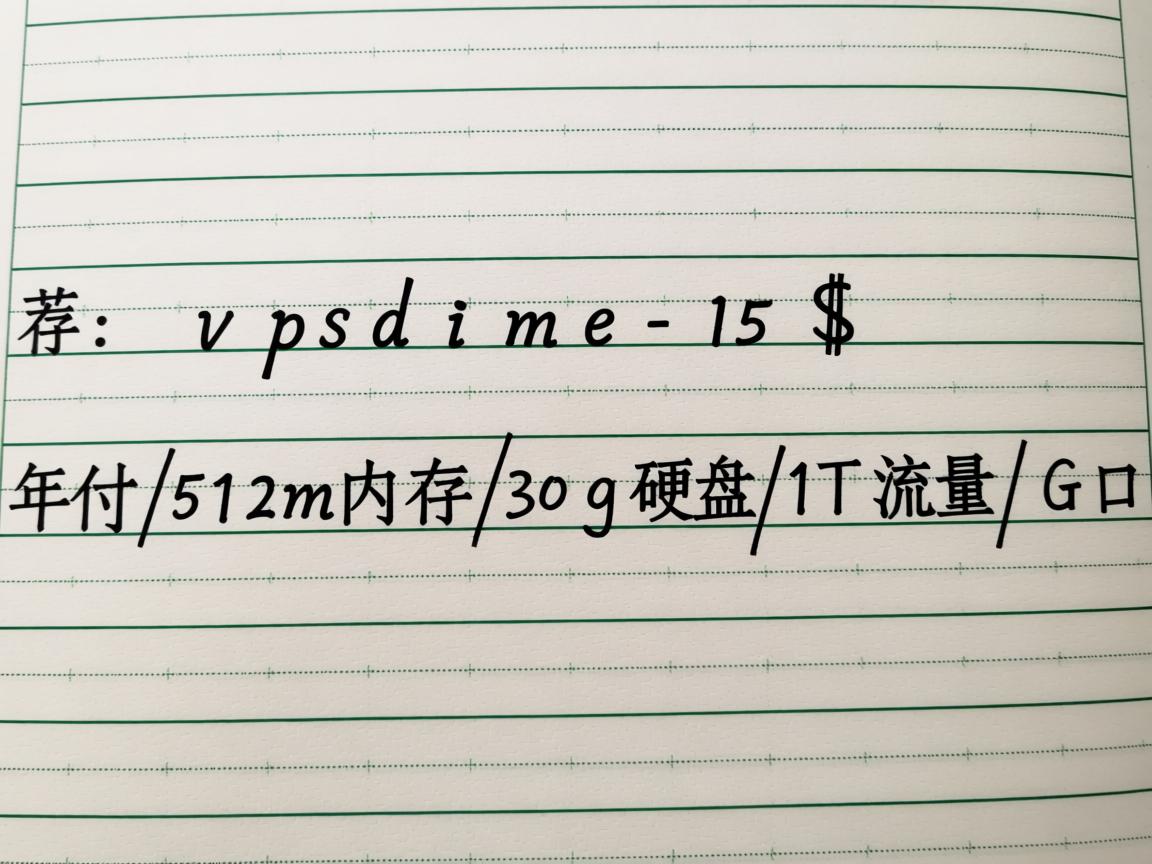 荐： vpsdime-15$
年付/512m内存/30g硬盘/1T流量/G口